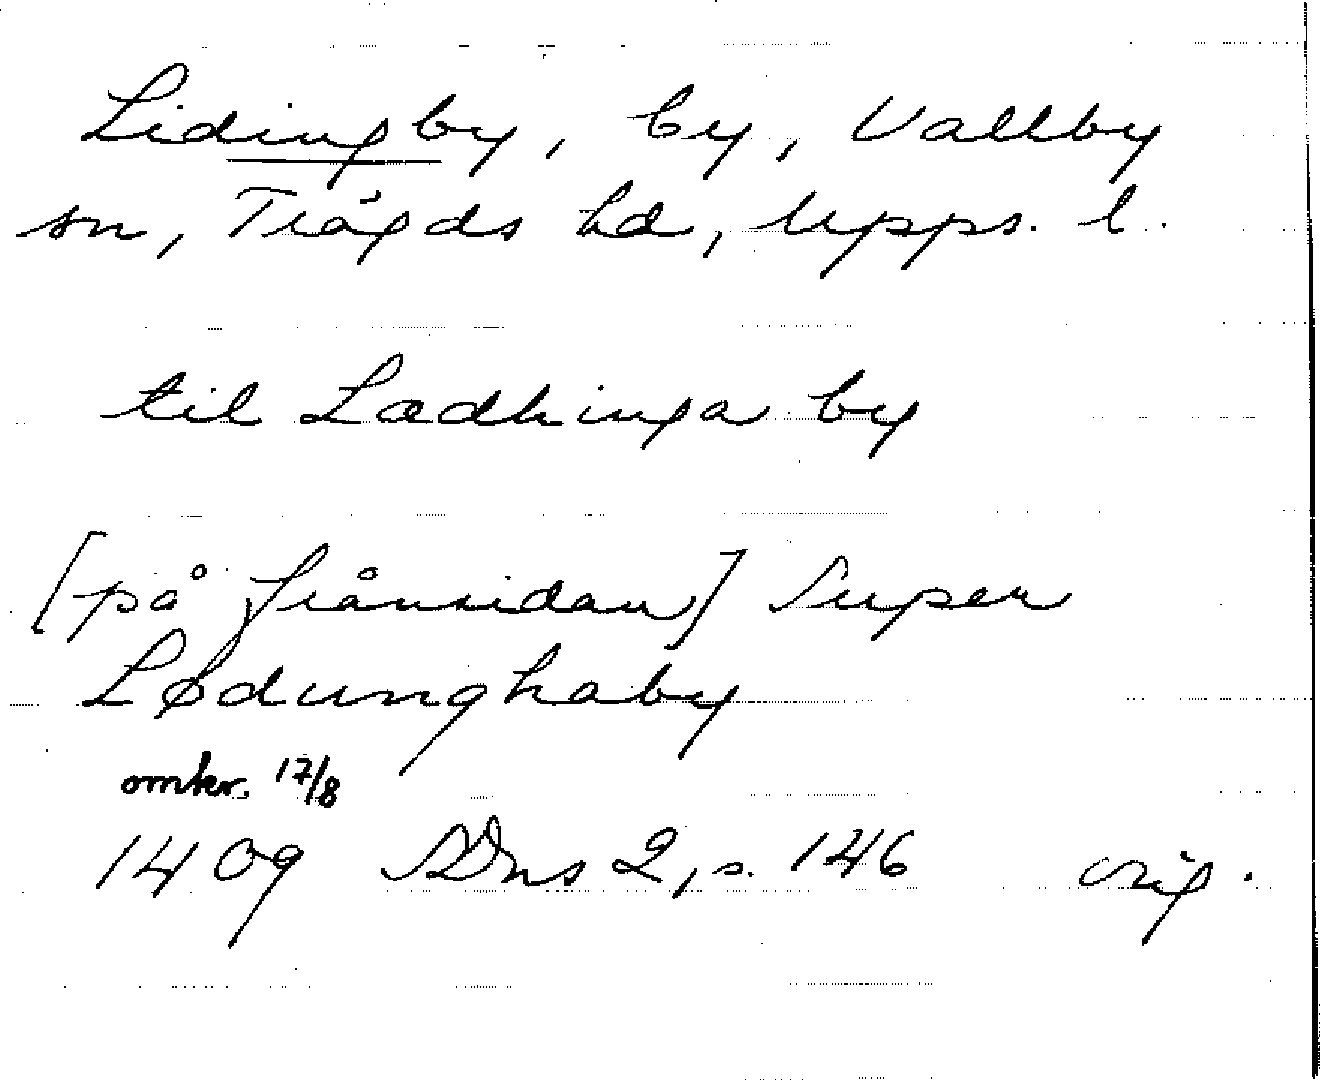 Lidingby, by, Vallby
sn, Trögds hd, Upps. l.
til Lædhinga by
[på frånsidan] Super
Lødunghaby
omkr. 17/8
1409 SDns 2, s. 146 orig.